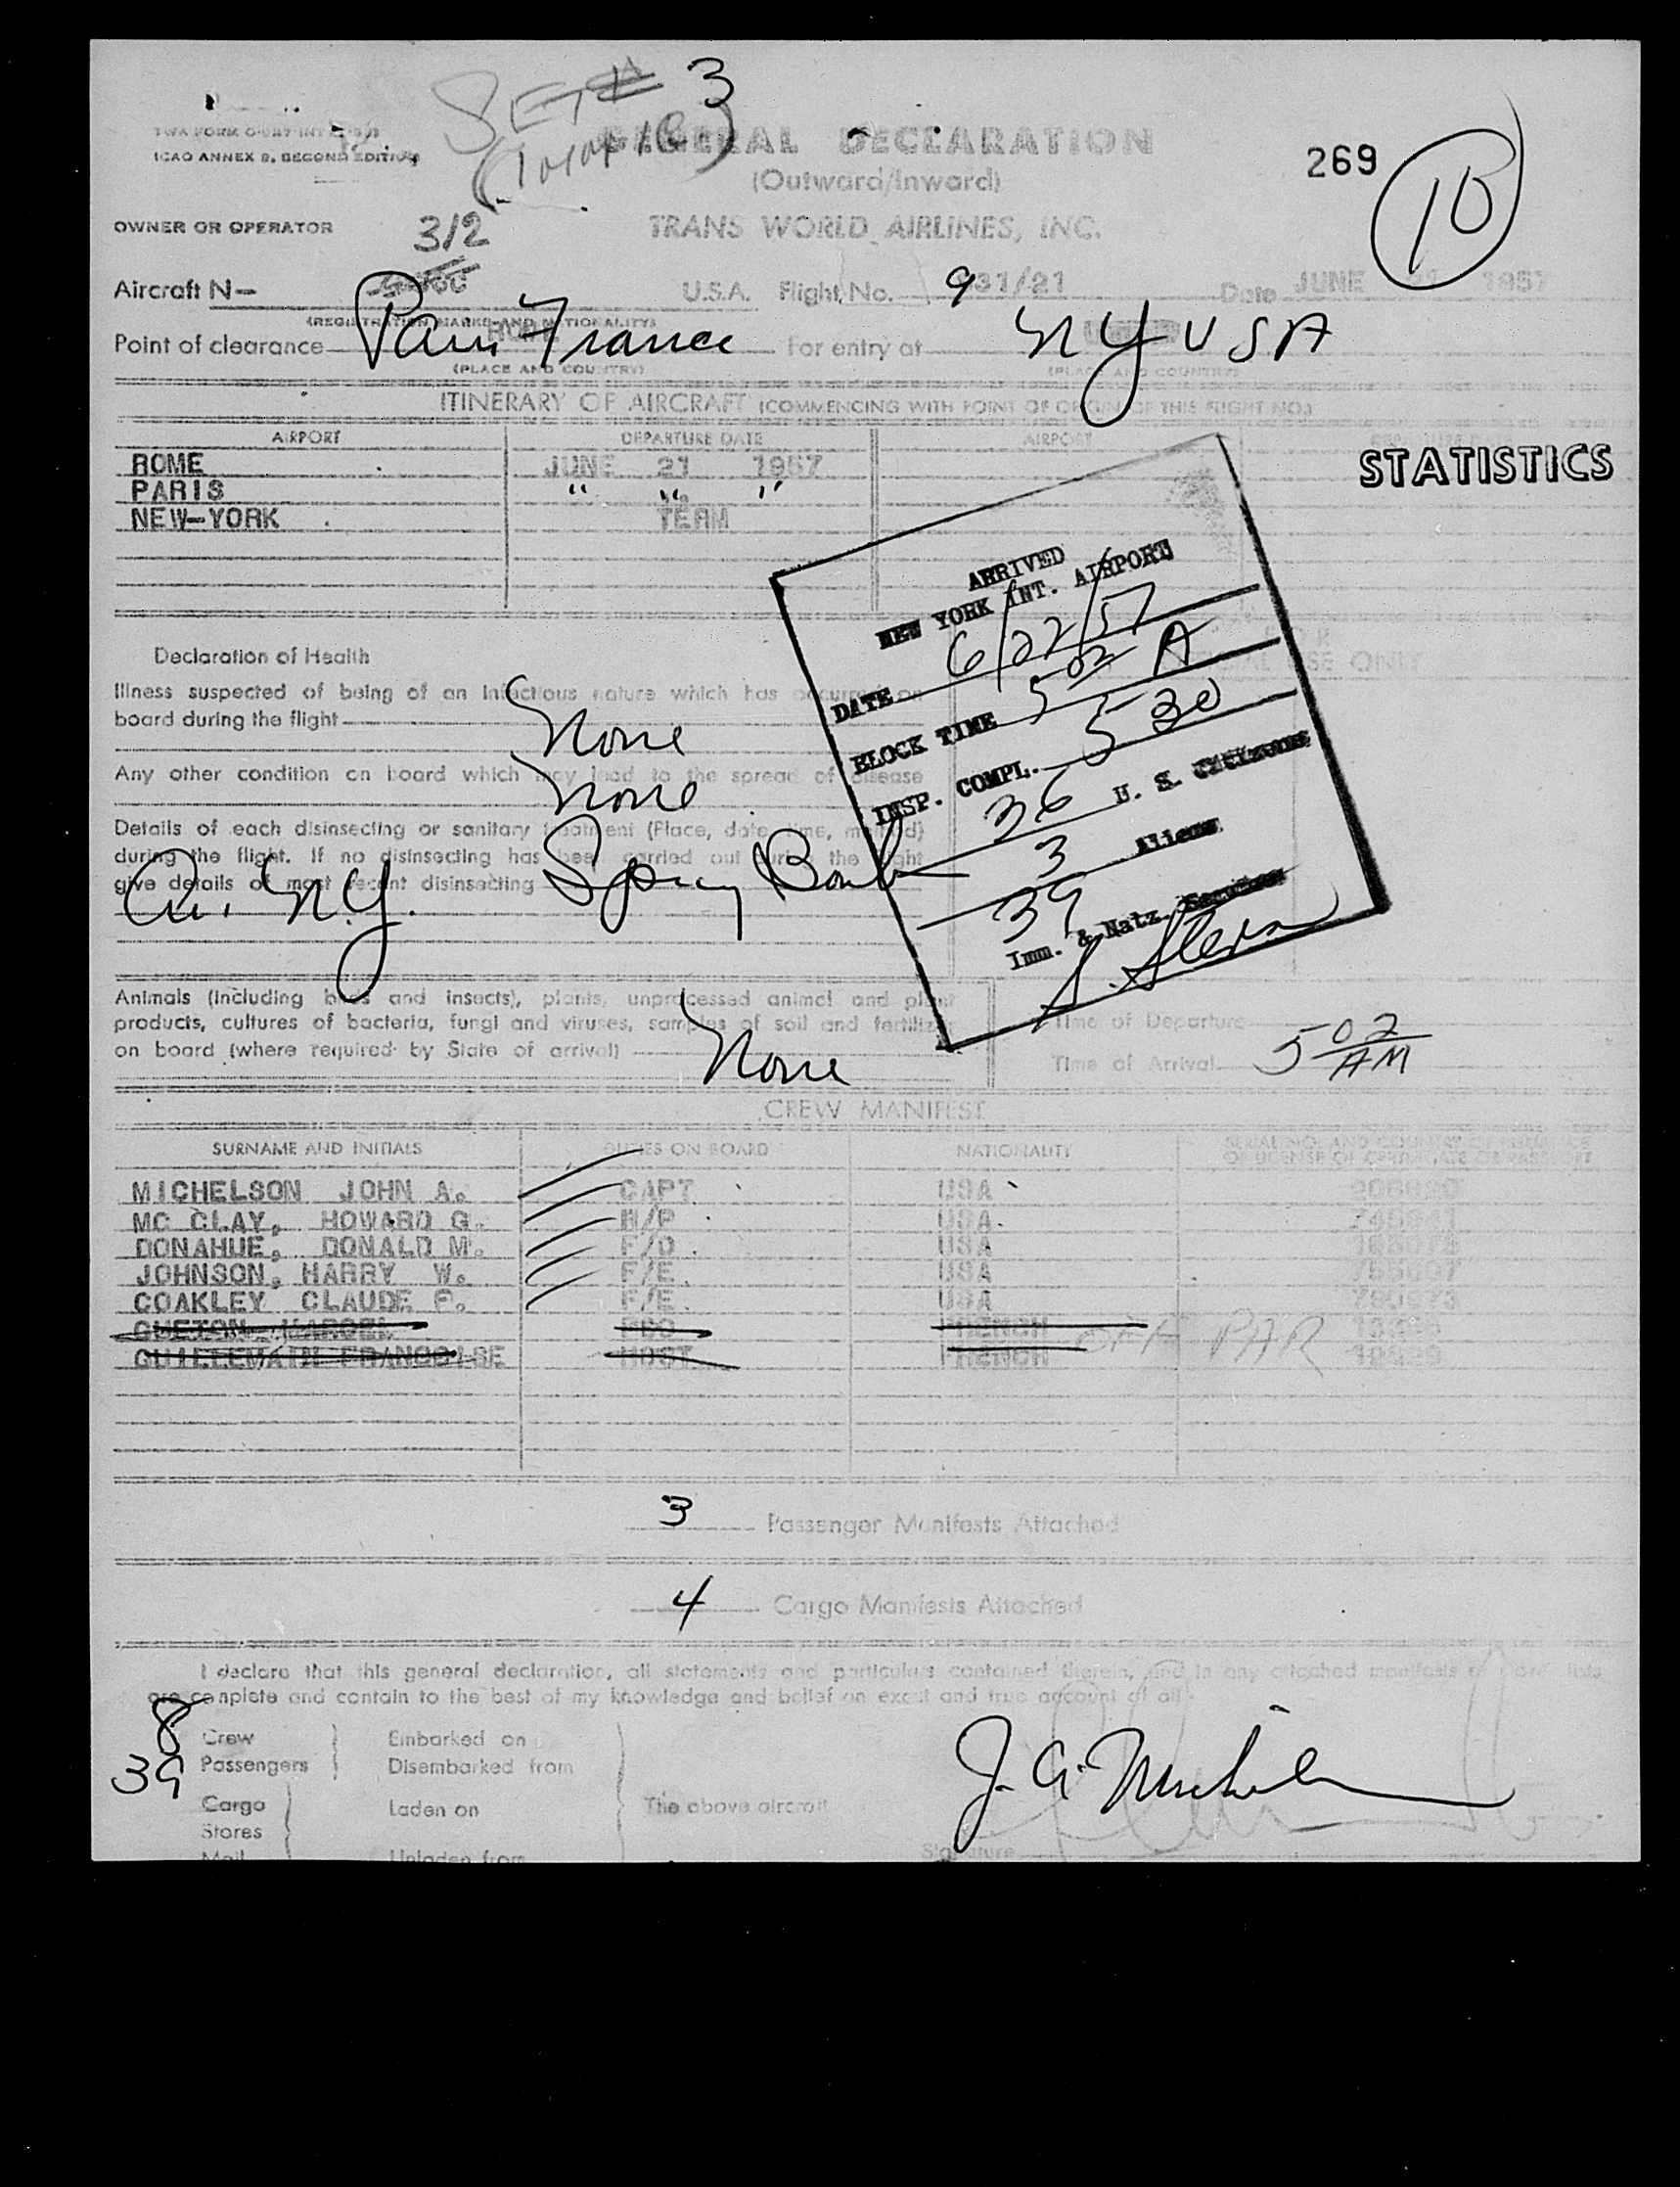 SET # 3
GENERAL DECLARATION
ICAO ANNEX 9, SECOND EDITION
(Outward/Inward)
269
10
OWNER OR OPERATOR
TRANS WORLD AIRLINES, INC.
312
Aircraft N—
U.S.A. Flight No. 931/21 Date JUNE 21 1957
(REGISTRATION MARKS AND NATIONALITY)
Point of clearance Paris France For entry at NY USA
(PLACE AND COUNTRY) (PLACE AND COUNTRY)
ITINERARY OF AIRCRAFT (COMMENCING WITH POINT OF ORIGIN OF THIS FLIGHT NO.)
AIRPORT DEPARTURE DATE AIRPORT
STATISTICS
ROME JUNE 21 1957
PARIS " " "
NEW-YORK TERM
ARRIVED
NEW YORK INT. AIRPORT
DATE 6/22/57
BLOCK TIME 5 02 A
INSP. COMPL. 5 30
36 U. S. Citizens
3 Aliens
39
Imm. & Natz. Service
Declaration of Health
USE ONLY
Illness suspected of being of an infectious nature which has occurred on
board during the flight
None
Any other condition on board which may lead to the spread of disease
None
Details of each disinsecting or sanitary treatment (Place, date, time, method)
during the flight. If no disinsecting has been carried out during the flight
give details of most recent disinsecting
Ar. N.Y. Spray Bomb
Animals (including birds and insects), plants, unprocessed animal and plant
products, cultures of bacteria, fungi and viruses, samples of soil and fertilizer
on board (where required by State of arrival)
None
Time of Departure
Time of Arrival 5 02 AM
CREW MANIFEST
SURNAME AND INITIALS DUTIES ON BOARD NATIONALITY
MICHELSON JOHN A. CAPT USA
MC CLAY, HOWARD G. USA
DONAHUE, DONALD M. F/O USA
JOHNSON, HARRY W. F/E USA
COAKLEY CLAUDE F. F/E USA
FRENCH OFF PAR
GUILLEMAIN FRANCOISE HOST FRENCH
3 Passenger Manifests Attached
4 Cargo Manifests Attached
I declare that this general declaration, all statements and particulars contained therein, and in any attached manifests
are complete and contain to the best of my knowledge and belief an exact and true account of all
8 Crew Embarked on
39 Passengers Disembarked from
Cargo Laden on The above aircraft
Stores
Mail Unladen from
J. A. Michelson
Signature